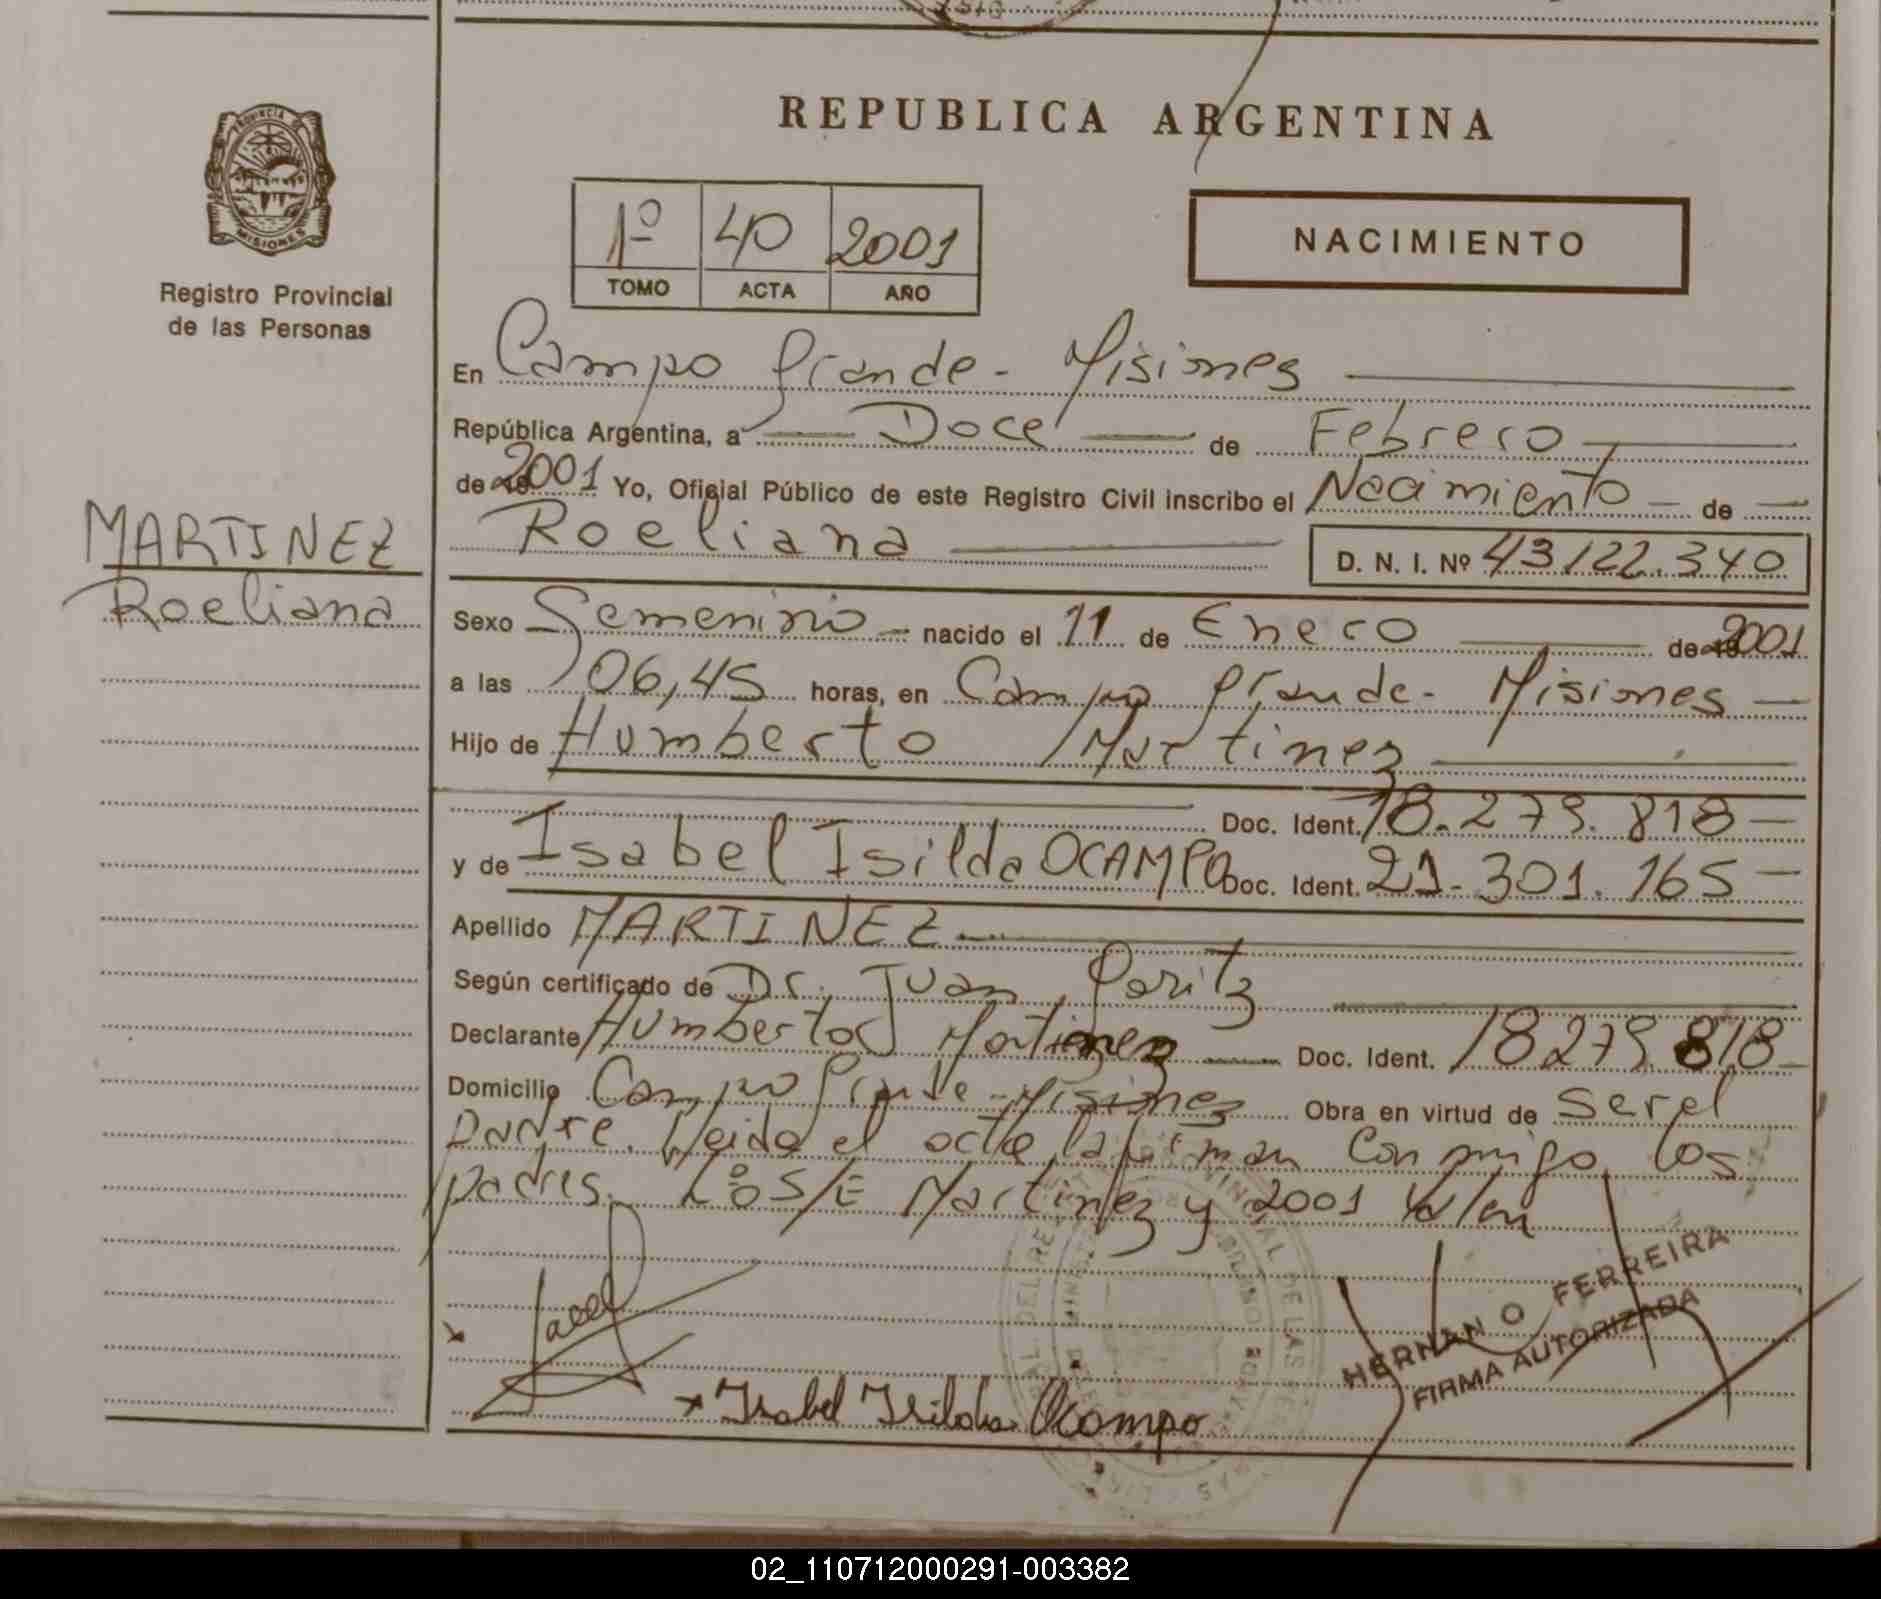 REPUBLICA ARGENTINA
PROVINCIA D
MISIONES
Registro Provincial
de las Personas
1º 40 2001
TOMO ACTA AÑO
NACIMIENTO
En Campo Grande - Misiones
República Argentina, a Doce de Febrero
de 2001 Yo, Oficial Público de este Registro Civil inscribo el Nacimiento de
Roeliana
D. N. I. Nº 43122.340
MARTINEZ
Roeliana
Sexo Femenino nacido el 11 de Enero de 2001
a las 06,45 horas, en Campo Grande - Misiones
Hijo de Humberto Martinez
Doc. Ident. 18.279.818
y de Isabel Isilda OCAMPO Doc. Ident. 21.301.165
Apellido MARTINEZ
Según certificado de Dr. Juan
Declarante Humberto Martinez Doc. Ident. 18279.818
Domicilio Campo Grande - Misiones Obra en virtud de ser el
padre. Leida el acta la firman conmigo los
padres. S/E Martinez y 2001
HERNAN O FERREIRA
FIRMA AUTORIZADA
Isabel Isilda Ocampo
02_110712000291-003382